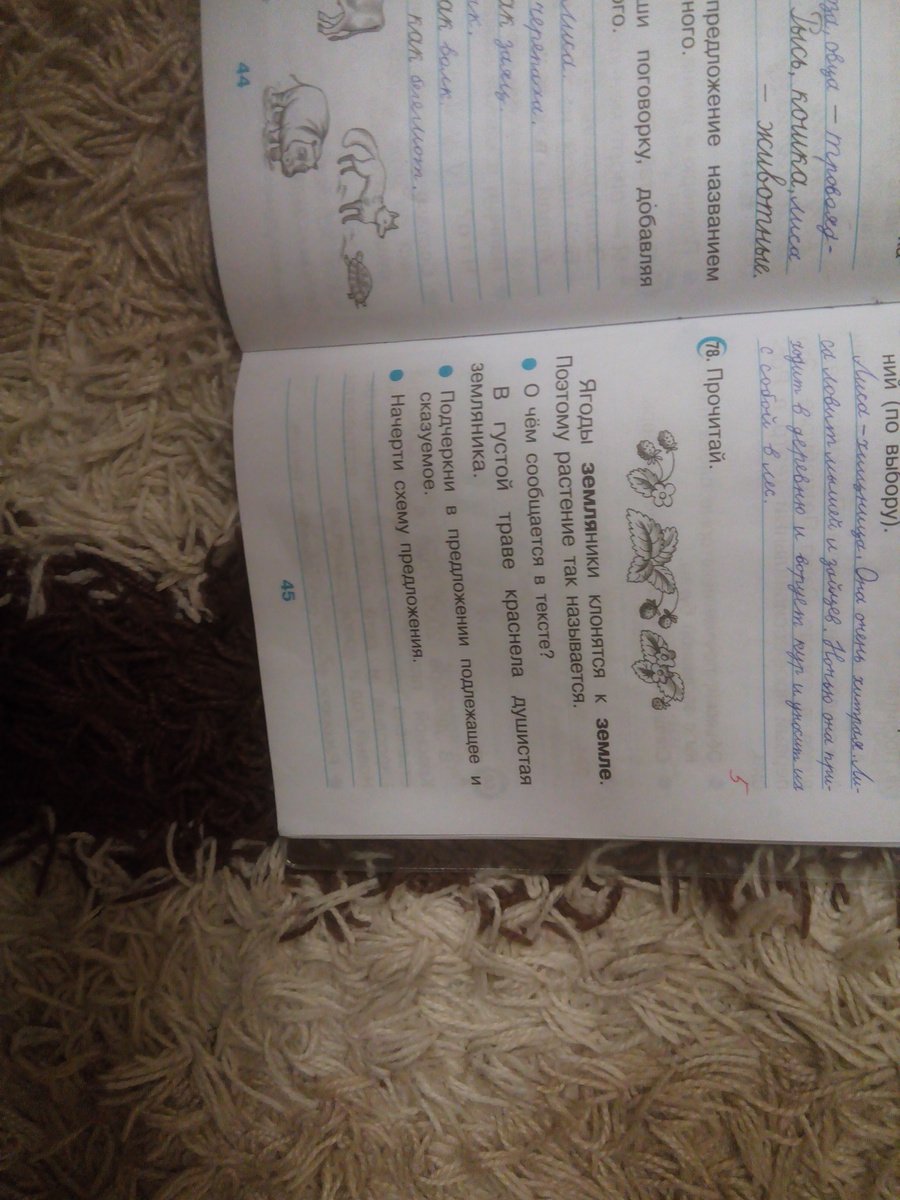 за, овца – травояд-
Рысь, кошка, лиса
– животные.
предложение названием
ного.
ши поговорку, добавляя
ого.
лиса.
черепаха.
ак заяц.
ак волк.
как бегемот.
44
ний (по выбору).
Лиса – хищница. Она очень хитрая. Ли-
са ловит мышей и зайцев. Ночью она при-
ходит в деревню и ворует кур и уносит их
с собой в лес.
5
78. Прочитай.
Ягоды земляники клонятся к земле.
Поэтому растение так называется.
О чём сообщается в тексте?
В густой траве краснела душистая
земляника.
Подчеркни в предложении подлежащее и
сказуемое.
Начерти схему предложения.
45